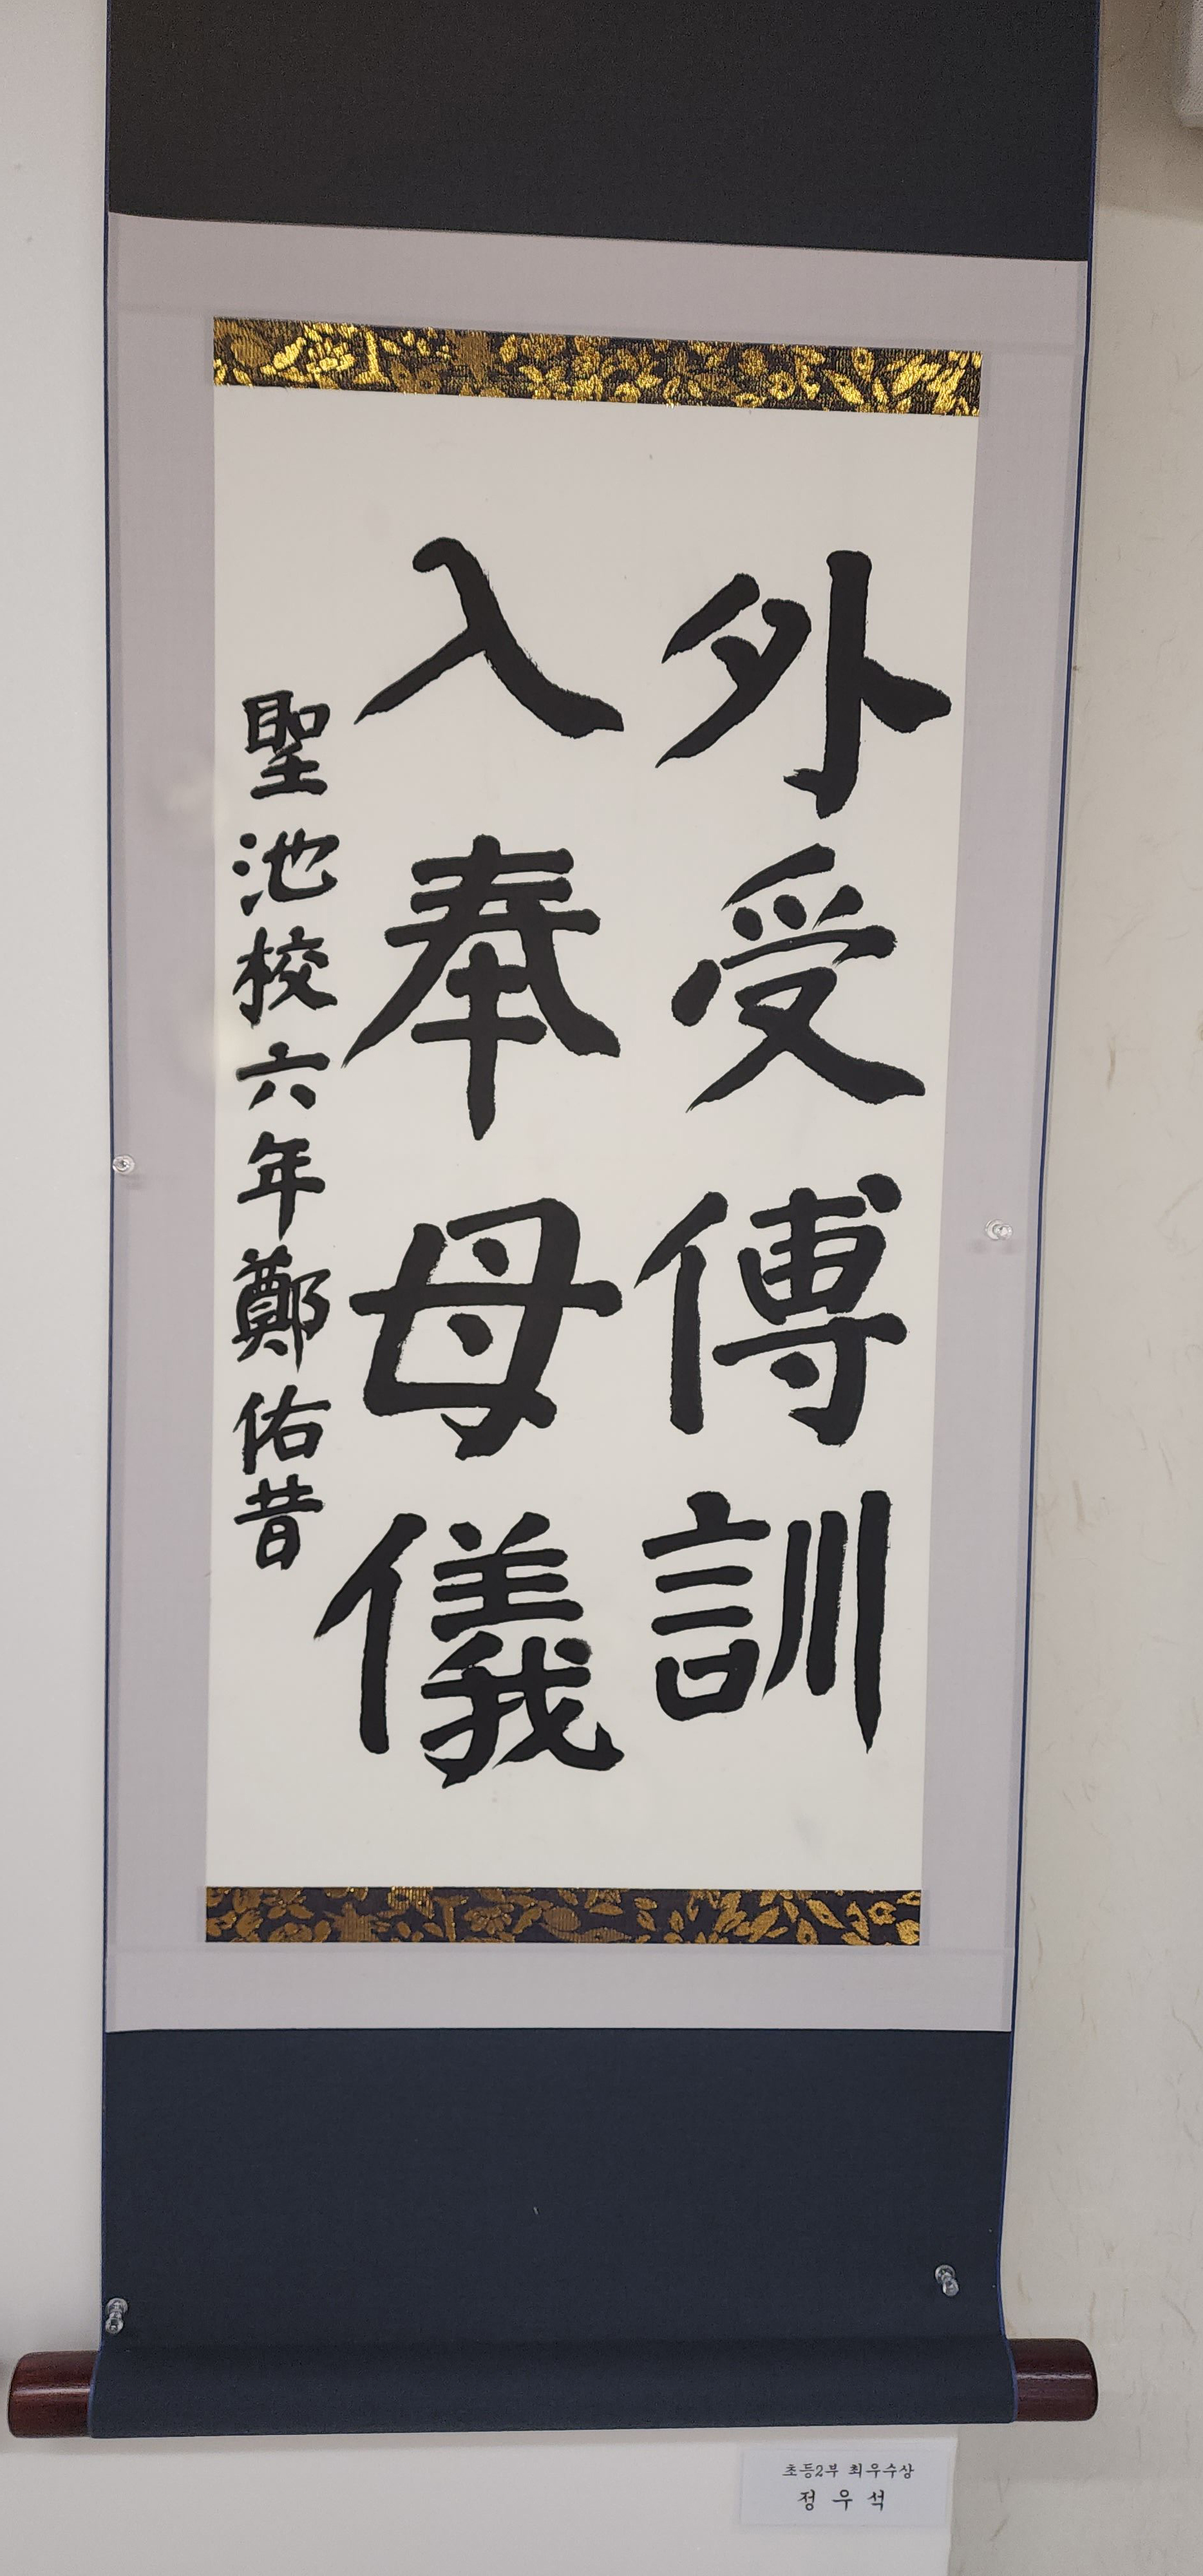 外受傅訓
入奉母儀
聖池校六年鄭佑昔
초등2부 최우수상
정우석